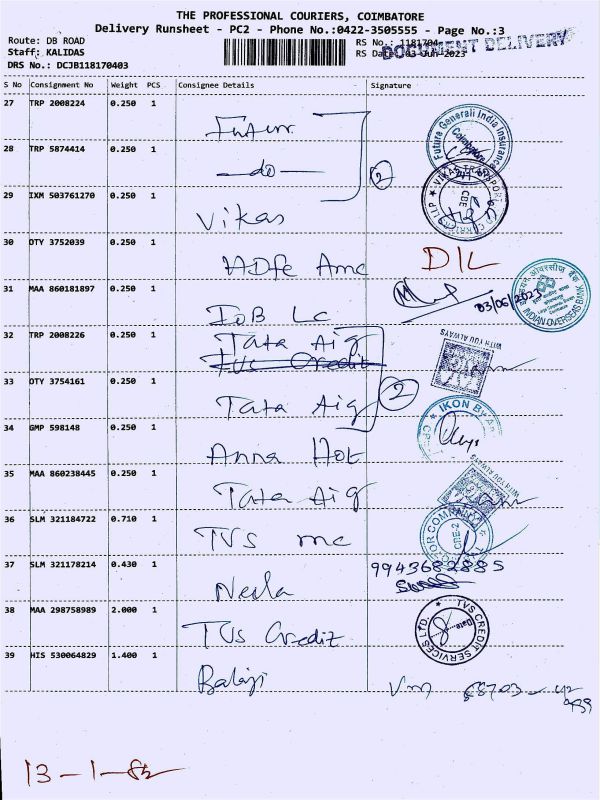 THE PROFESSIONAL COURIERS, COIMBATORE
Delivery Runsheet - PC2 - Phone No.:0422-3505555 - Page No.:3
Route: DB ROAD
RS No.: 1181704
Staff: KALIDAS
RS Date: 03-Jun-2023
DOCUMENT DELIVERY
DRS No.: DCJB118170403
S No Consignment No Weight PCS Consignee Details Signature
27 TRP 2008224 0.250 1
Future Generali India Insurance
Coimbatore
28 TRP 5874414 0.250 1
-do-
2
29 IXM 503761270 0.250 1
Vikas
VIKAS TRANSPORT
CBE
30 OTY 3752039 0.250 1
HDFC Amc
DIL
31 MAA 860181897 0.250 1
IOB Lc
03/06/2023
INDIAN OVERSEAS BANK
32 TRP 2008226 0.250 1
Tata Aig
TVS Credit
WITH YOU ALWAYS
33 OTY 3754161 0.250 1
Tata Aig
2
34 GMP 598148 0.250 1
Anna Hot
IKON
35 MAA 860238445 0.250 1
Tata Aig
WITH YOU ALWAYS
36 SLM 321184722 0.710 1
TVS mc
TOR COMPANY
CBE-2
37 SLM 321178214 0.430 1
9943682885
38 MAA 298758989 2.000 1
TVS Credit
TVS CREDIT SERVICES LTD.
Date
39 HIS 530064829 1.400 1
Balaji
13-1-82